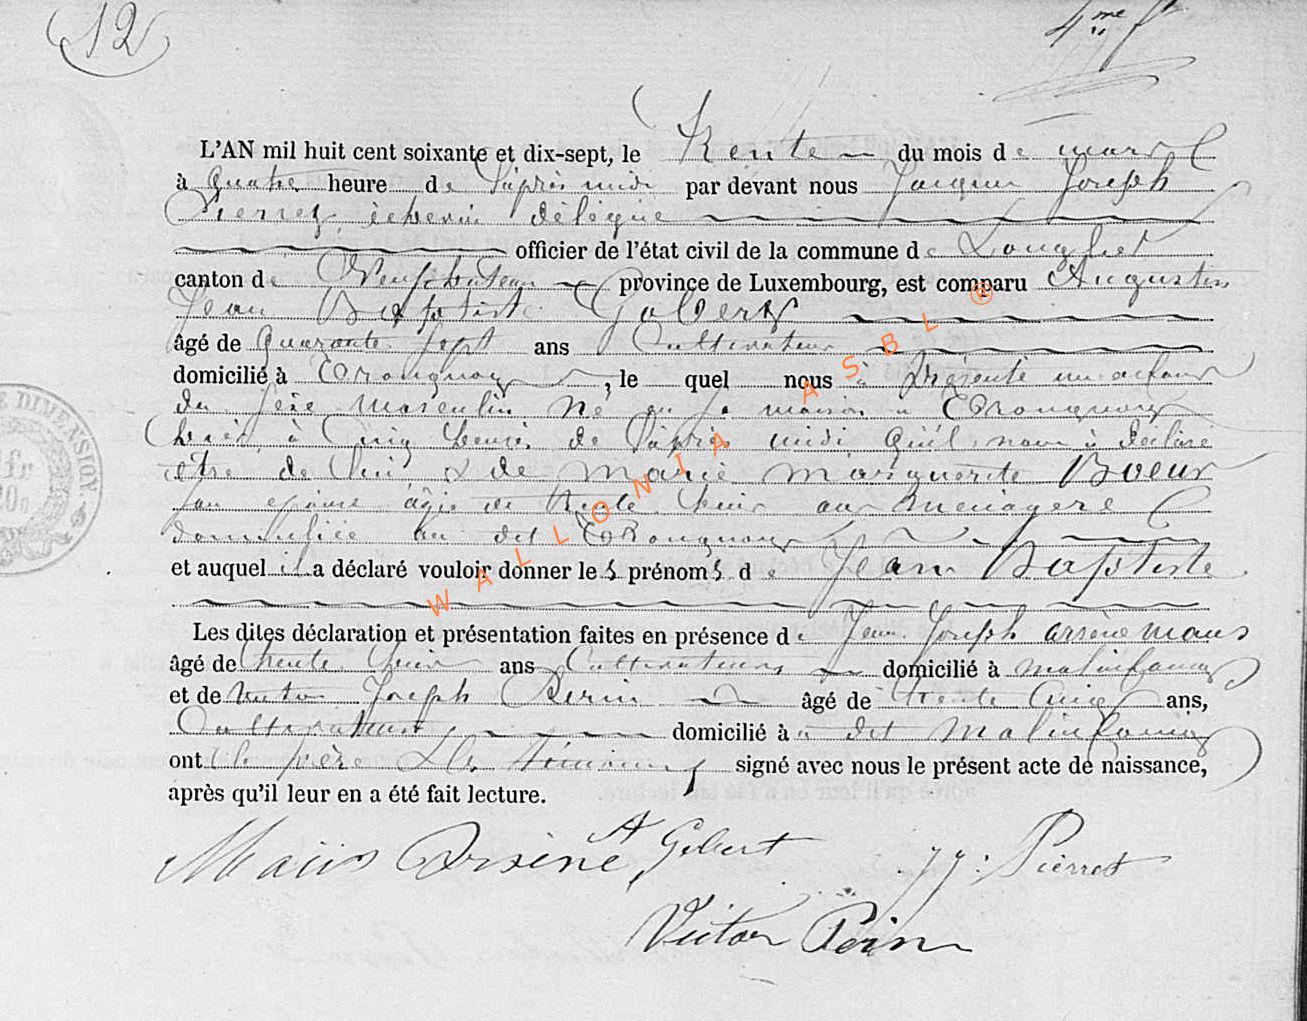 12
4me f
L'AN mil huit cent soixante et dix-sept, le Trente du mois de mars
à quatre heure de l'après midi par devant nous Jacques Joseph
Pierret, échevin délégué
officier de l'état civil de la commune de Longlier
canton de Neufchateau province de Luxembourg, est comparu Augustin
Jean Baptiste Gobert
âgé de quarante sept ans Cultivateur
domicilié à Tronquoy, le quel nous a présenté un enfant
du sexe masculin né en sa maison à Tronquoy
hier à Cinq heures de l'après midi qu'il nous a déclaré
être de lui & de Marie Marguerite Boeur
son épouse âgée de trente huit ans ménagère
domiciliée au dit Tronquoy
et auquel il a déclaré vouloir donner les prénoms de Jean Baptiste
Les dites déclaration et présentation faites en présence de Jean Joseph arsène Maus
âgé de trente huit ans Cultivateurs domicilié à malinfaing
et de Victor Joseph Perin âgé de trente Cinq ans,
Cultivateur domicilié à dit Malinfaing
ont le père & les témoins signé avec nous le présent acte de naissance,
après qu'il leur en a été fait lecture.
Maus Arsène, A Gobert J J. Pierret
Victor Perin
E DIMENSION.
WALLONIA ASBL ®